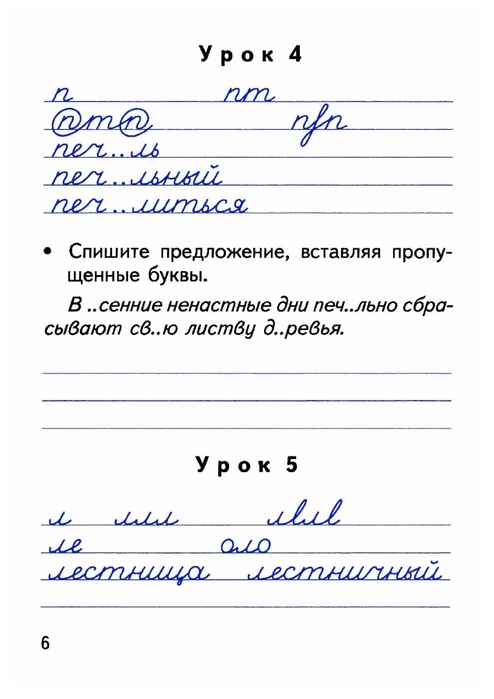 Урок 4
п пт
птп п/п
печ..ль
печ..льный
печ..литься
• Спишите предложение, вставляя пропу-
щенные буквы.
В ..сенние ненастные дни печ..льно сбра-
сывают св..ю листву д..ревья.
Урок 5
л ллл лвлв
ле оло
лестница лестничный
6